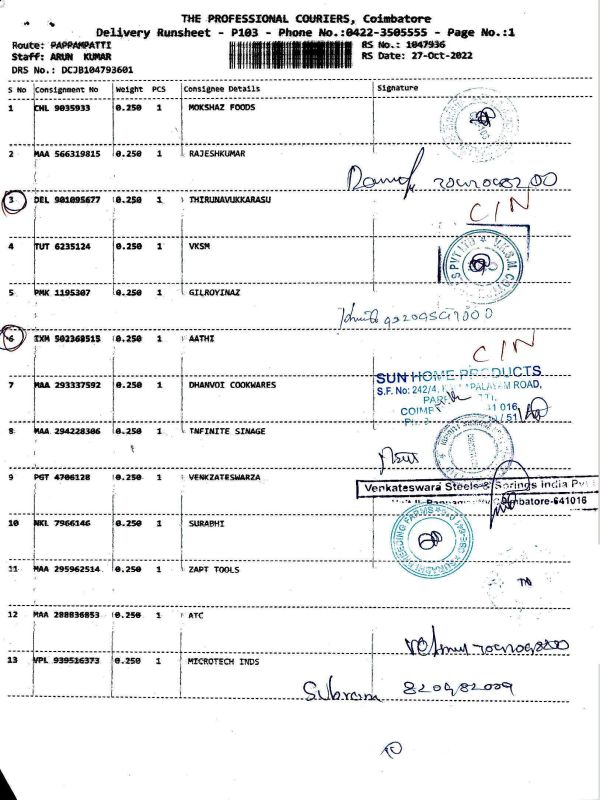 THE PROFESSIONAL COURIERS, Coimbatore
Delivery Runsheet - P103 - Phone No.:0422-3505555 - Page No.:1
Route: PAPPAMPATTI RS No.: 1047936
Staff: ARUN KUMAR RS Date: 27-Oct-2022
DRS No.: DCJB104793601
S No Consignment No Weight PCS Consignee Details Signature
1 CHL 9035933 0.250 1 MOKSHAZ FOODS
2 MAA 566319815 0.250 1 RAJESHKUMAR
3 DEL 901095677 0.250 1 THIRUNAVUKKARASU
C/N
4 TUT 6235124 0.250 1 VKSM
5 PMK 1195307 0.250 1 GILROYINAZ
6 IXM 502368515 0.250 1 AATHI
C/N
7 MAA 293337592 0.250 1 DHANVOI COOKWARES
SUN HOME PRODUCTS
S.F. No: 242/4, ROAD,
8 MAA 294228306 0.250 1 INFINITE SINAGE
9 PGT 4706128 0.250 1 VENKZATESWARZA
Venkateswara Steels & Springs India Pvt
Coimbatore-641016
10 NKL 7966146 0.250 1 SURABHI
11 MAA 295962514 0.250 1 ZAPT TOOLS
12 MAA 288836853 0.250 1 ATC
13 VPL 939516373 0.250 1 MICROTECH INDS